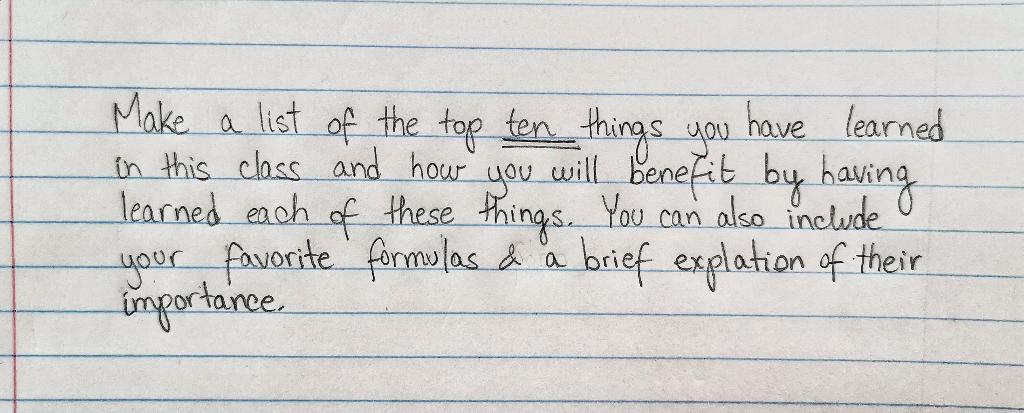 Make a list of the top ten things you have learned
in this class and how you will benefit by having
learned each of these things. You can also include
your favorite formulas & a brief explation of their
importance.